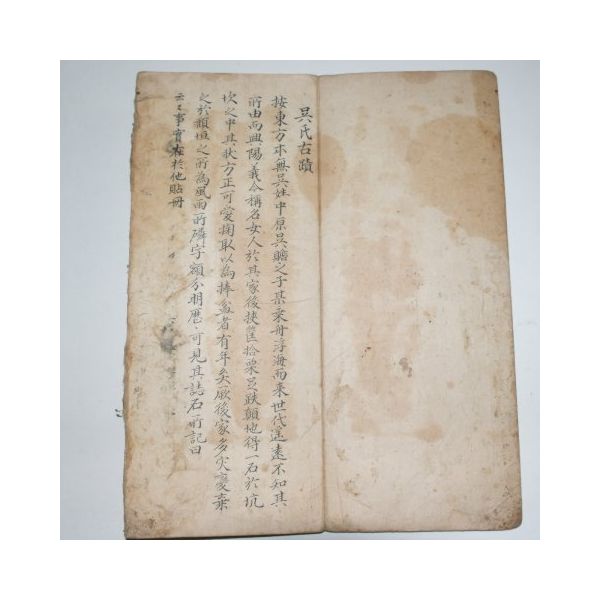 吳氏古蹟
按東方本無吳姓中原吳瞻之子某乘舟浮海而來世代遥遠不知其
所由而興陽義令稱名女人於其家後挾筐拾栗足跌顛地得一石於坑
坎之中其狀方正可愛掬取以為捧盆者有年矣厥後家多灾變棄
之於頹垣之所為風雨所磷字額分明歷〻可見其誌石所記曰
云〻事實在於他貼冊